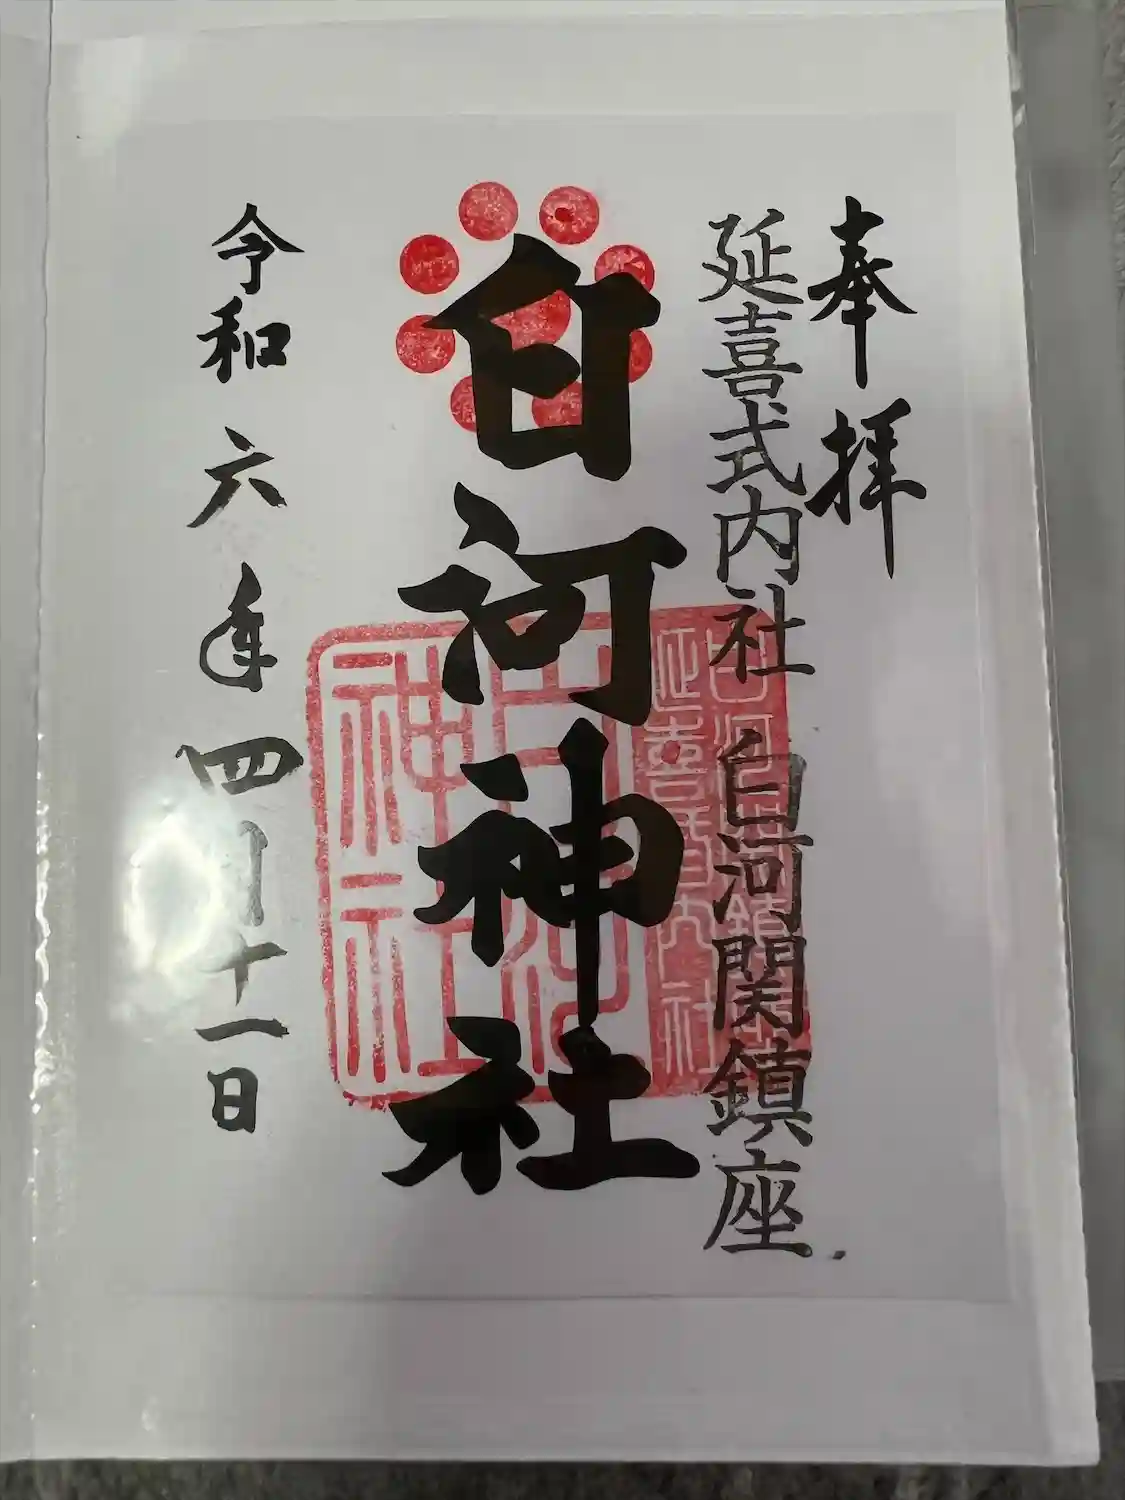 奉拝
延喜式内社 白河関鎮座
白河神社
延喜式内社
白河神社
令和六年四月十一日